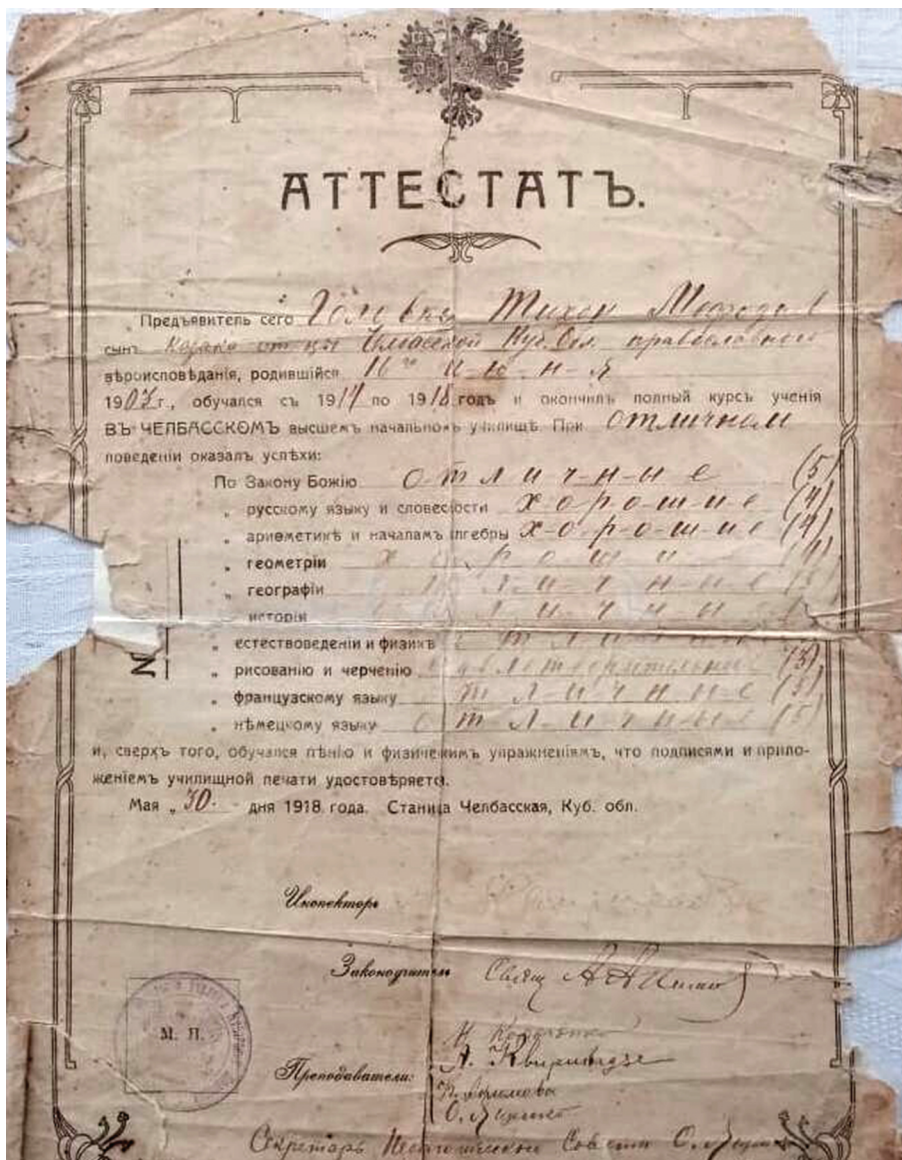 АТТЕСТАТЪ.
Предъявитель сего Головко Тихон
сынъ козака ст-цы Челбасской Куб. Обл. православнаго
вѣроисповѣданія, родившійся 16го и-ю-н-я
1903 г., обучался съ 1914 по 1918 годъ и окончилъ полный курсъ ученія
ВЪ ЧЕЛБАССКОМЪ высшемъ начальномъ училищѣ. При отличном
поведеніи оказалъ успѣхи:
По Закону Божію о-т-л-и-ч-н-ы-е (5)
„ русскому языку и словесности х-о-р-о-ш-и-е (4)
„ ариѳметикѣ и началамъ алгебры х-о-р-о-ш-и-е (4)
„ геометріи х о р о ш и е (4)
„ географіи о т л и ч н ы е (5)
„ исторіи о т л и ч н ы е
„ естествоведеніи и физикѣ о т л и ч н ы е
„ рисованію и черченію удовлетворительные (3)
„ французскому языку о т л и ч н ы е (5)
„ нѣмецкому языку о т л и ч н ы е (5)
и, сверхъ того, обучался пѣнію и физическимъ упражненіямъ, что подписями и прило-
женіемъ училищной печати удостовѣряется.
Мая „30“ дня 1918 года. Станица Челбасская, Куб. обл.
Инспекторъ
Законоучитель Свящ А.
М. П.
А.
Преподаватели:
О.
Секретарь Педагогическаго Совета О.
№